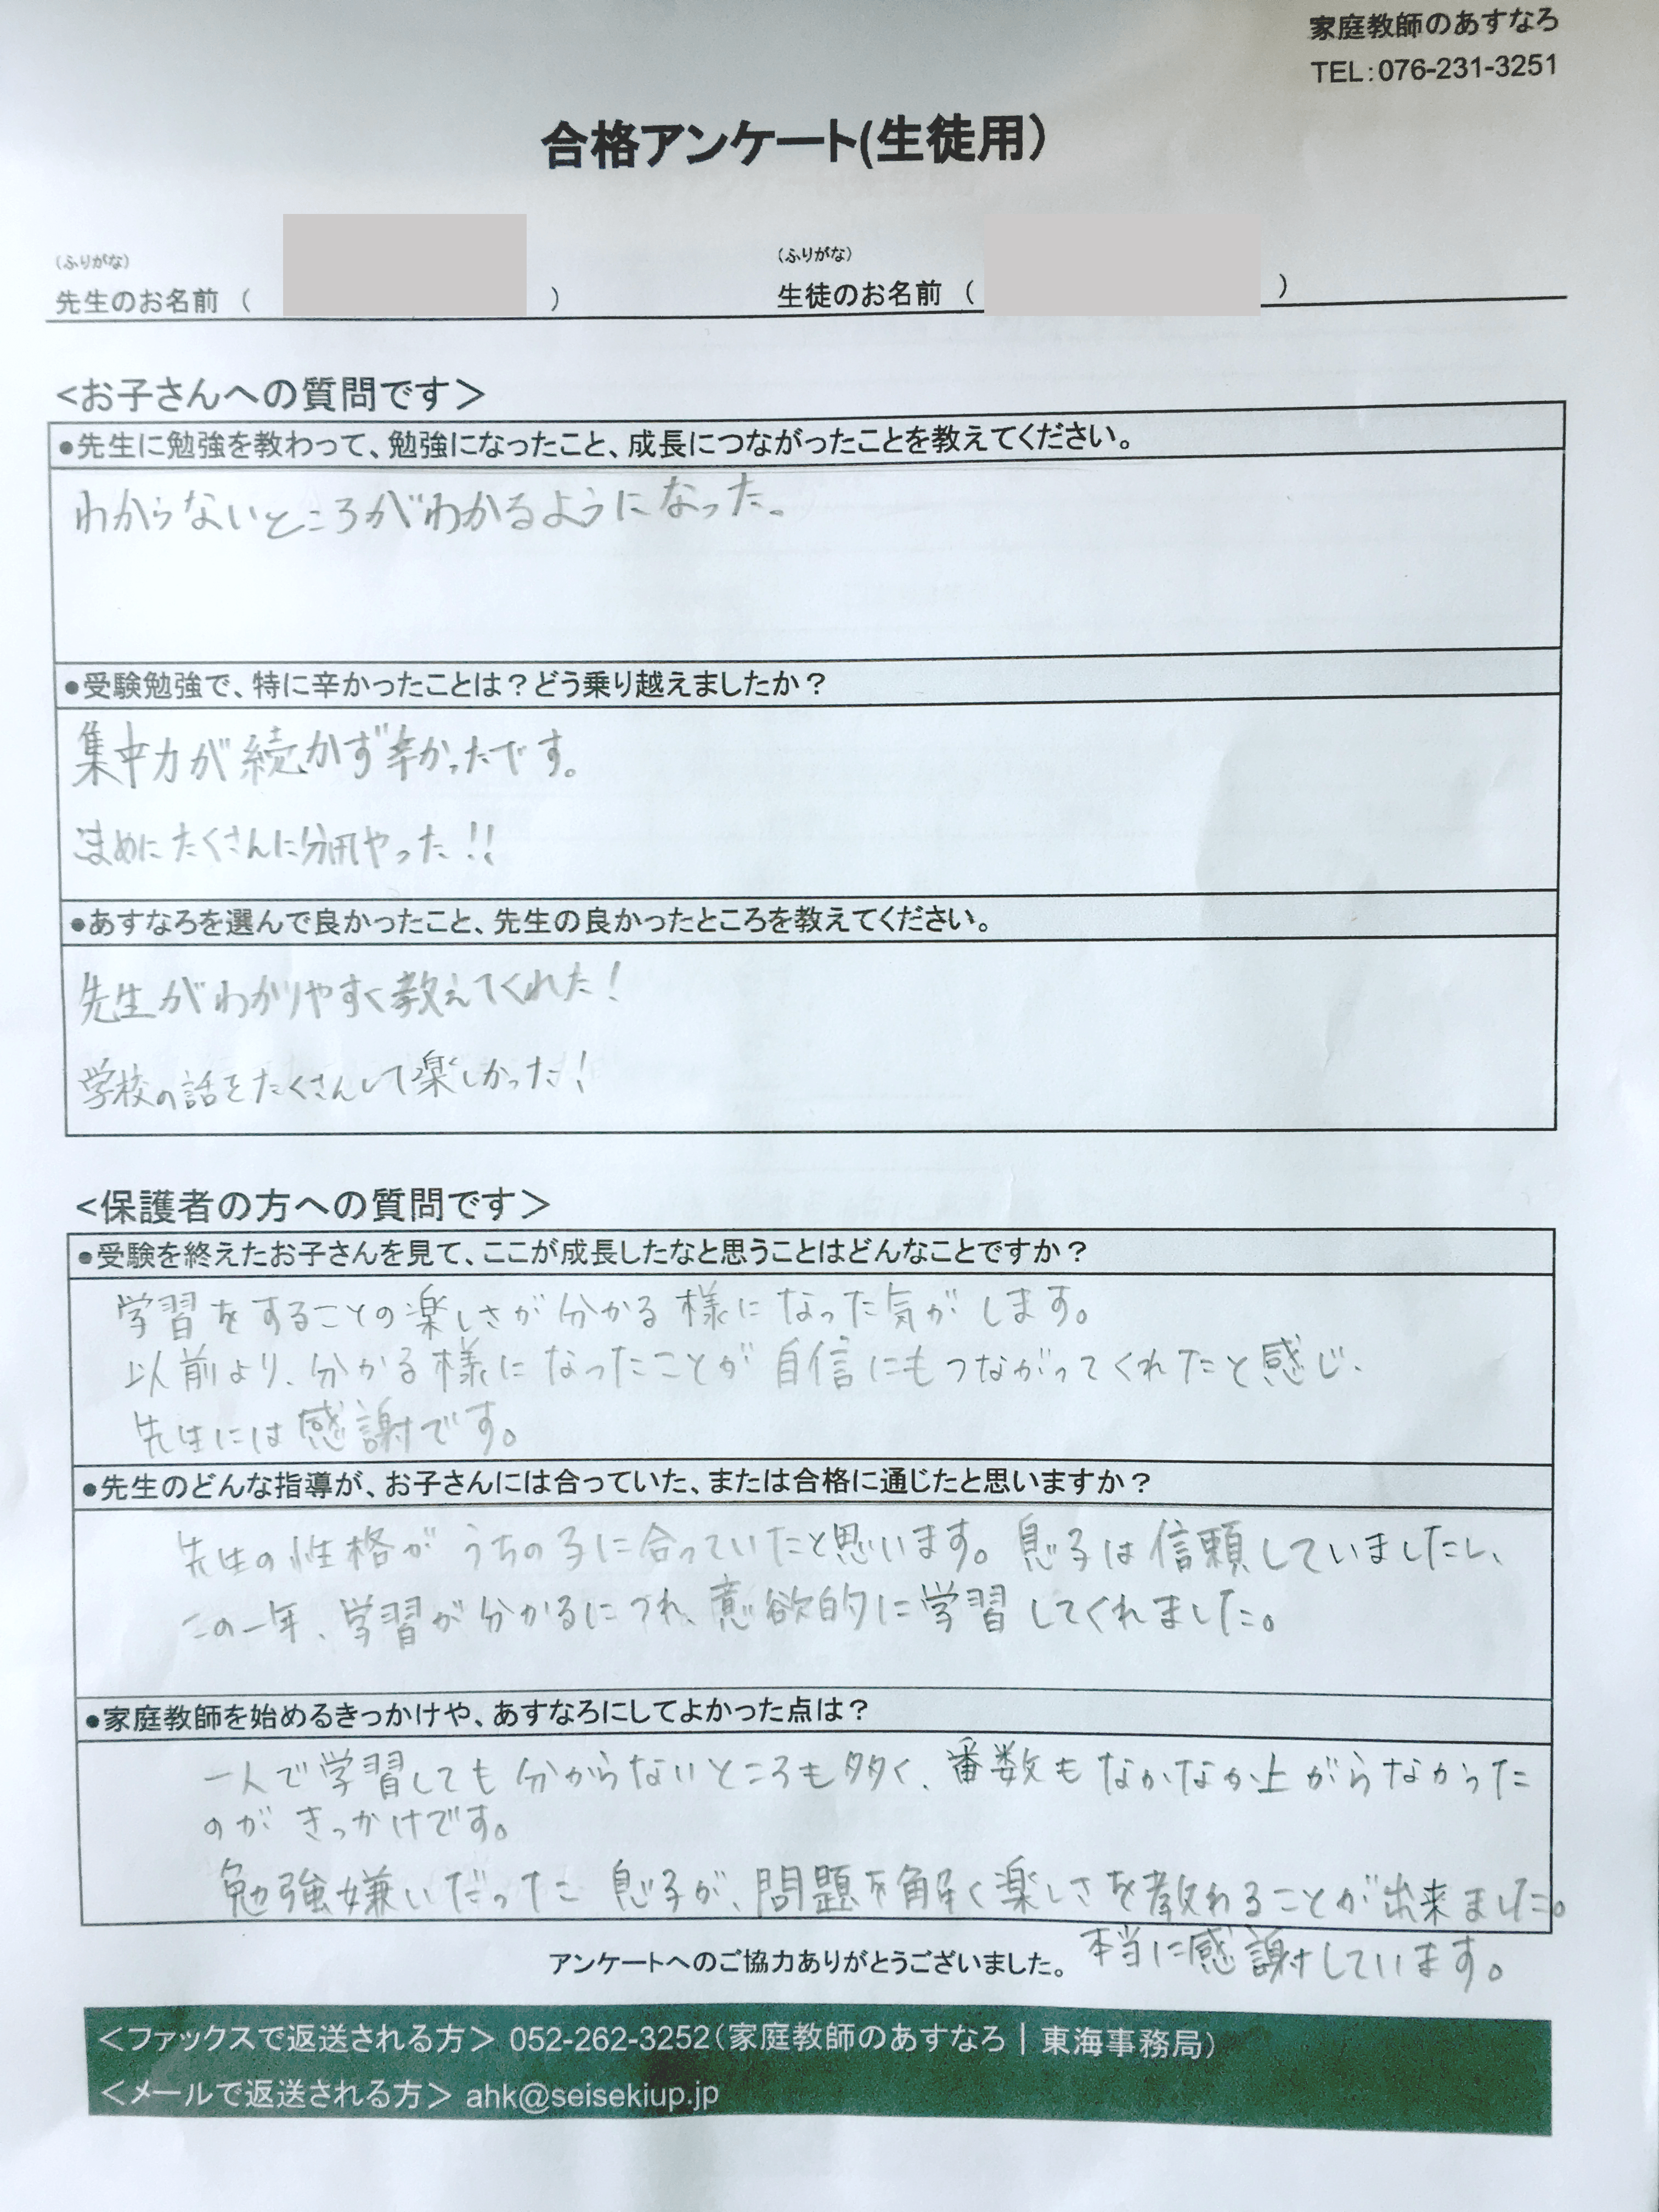 家庭教師のあすなろ
TEL：076-231-3251
合格アンケート(生徒用）
（ふりがな）
先生のお名前（ ）
（ふりがな）
生徒のお名前（ ）
<お子さんへの質問です＞
●先生に勉強を教わって、勉強になったこと、成長につながったことを教えてください。
わからないところがわかるようになった。
●受験勉強で、特に辛かったことは？どう乗り越えましたか？
集中力が続かず辛かったです。
こまめにたくさんに分けてやった!!
●あすなろを選んで良かったこと、先生の良かったところを教えてください。
先生がわかりやすく教えてくれた！
学校の話をたくさんして楽しかった！
<保護者の方への質問です＞
●受験を終えたお子さんを見て、ここが成長したなと思うことはどんなことですか？
学習をすることの楽しさが分かる様になった気がします。
以前より、分かる様になったことが自信にもつながってくれたと感じ、
先生には感謝です。
●先生のどんな指導が、お子さんには合っていた、または合格に通じたと思いますか？
先生の性格がうちの子に合っていたと思います。息子は信頼していましたし、
この一年、学習が分かるにつれ、意欲的に学習してくれました。
●家庭教師を始めるきっかけや、あすなろにしてよかった点は？
一人で学習しても分からないところも多く、番数もなかなか上がらなかった
のがきっかけです。
勉強嫌いだった息子が、問題を解く楽しさを教わることが出来ました。
本当に感謝しています。
アンケートへのご協力ありがとうございました。
＜ファックスで返送される方＞ 052-262-3252（家庭教師のあすなろ｜東海事務局）
＜メールで返送される方＞ ahk@seisekiup.jp